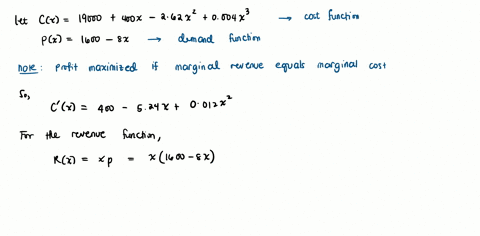 let C(x) = 19000 + 400x − 2.62x² + 0.004x³ → cost function
p(x) = 1600 − 8x → demand function
note: profit maximized if marginal revenue equals marginal cost
So,
C'(x) = 400 − 5.24x + 0.012x²
For the revenue function,
R(x) = xp = x(1600 − 8x)